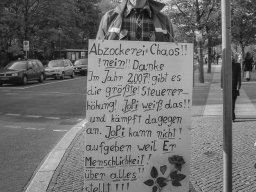 Abzockerei, Chaos!!
!nein!! Danke
Im Jahr 2007! gibt es
die größte! Steuerer-
höhung! JoPi weiß das!!
und kämpft dagegen
an. JoPi kann nicht!
aufgeben weil Er
Menschlichkeit!
über alles!
stellt!!!